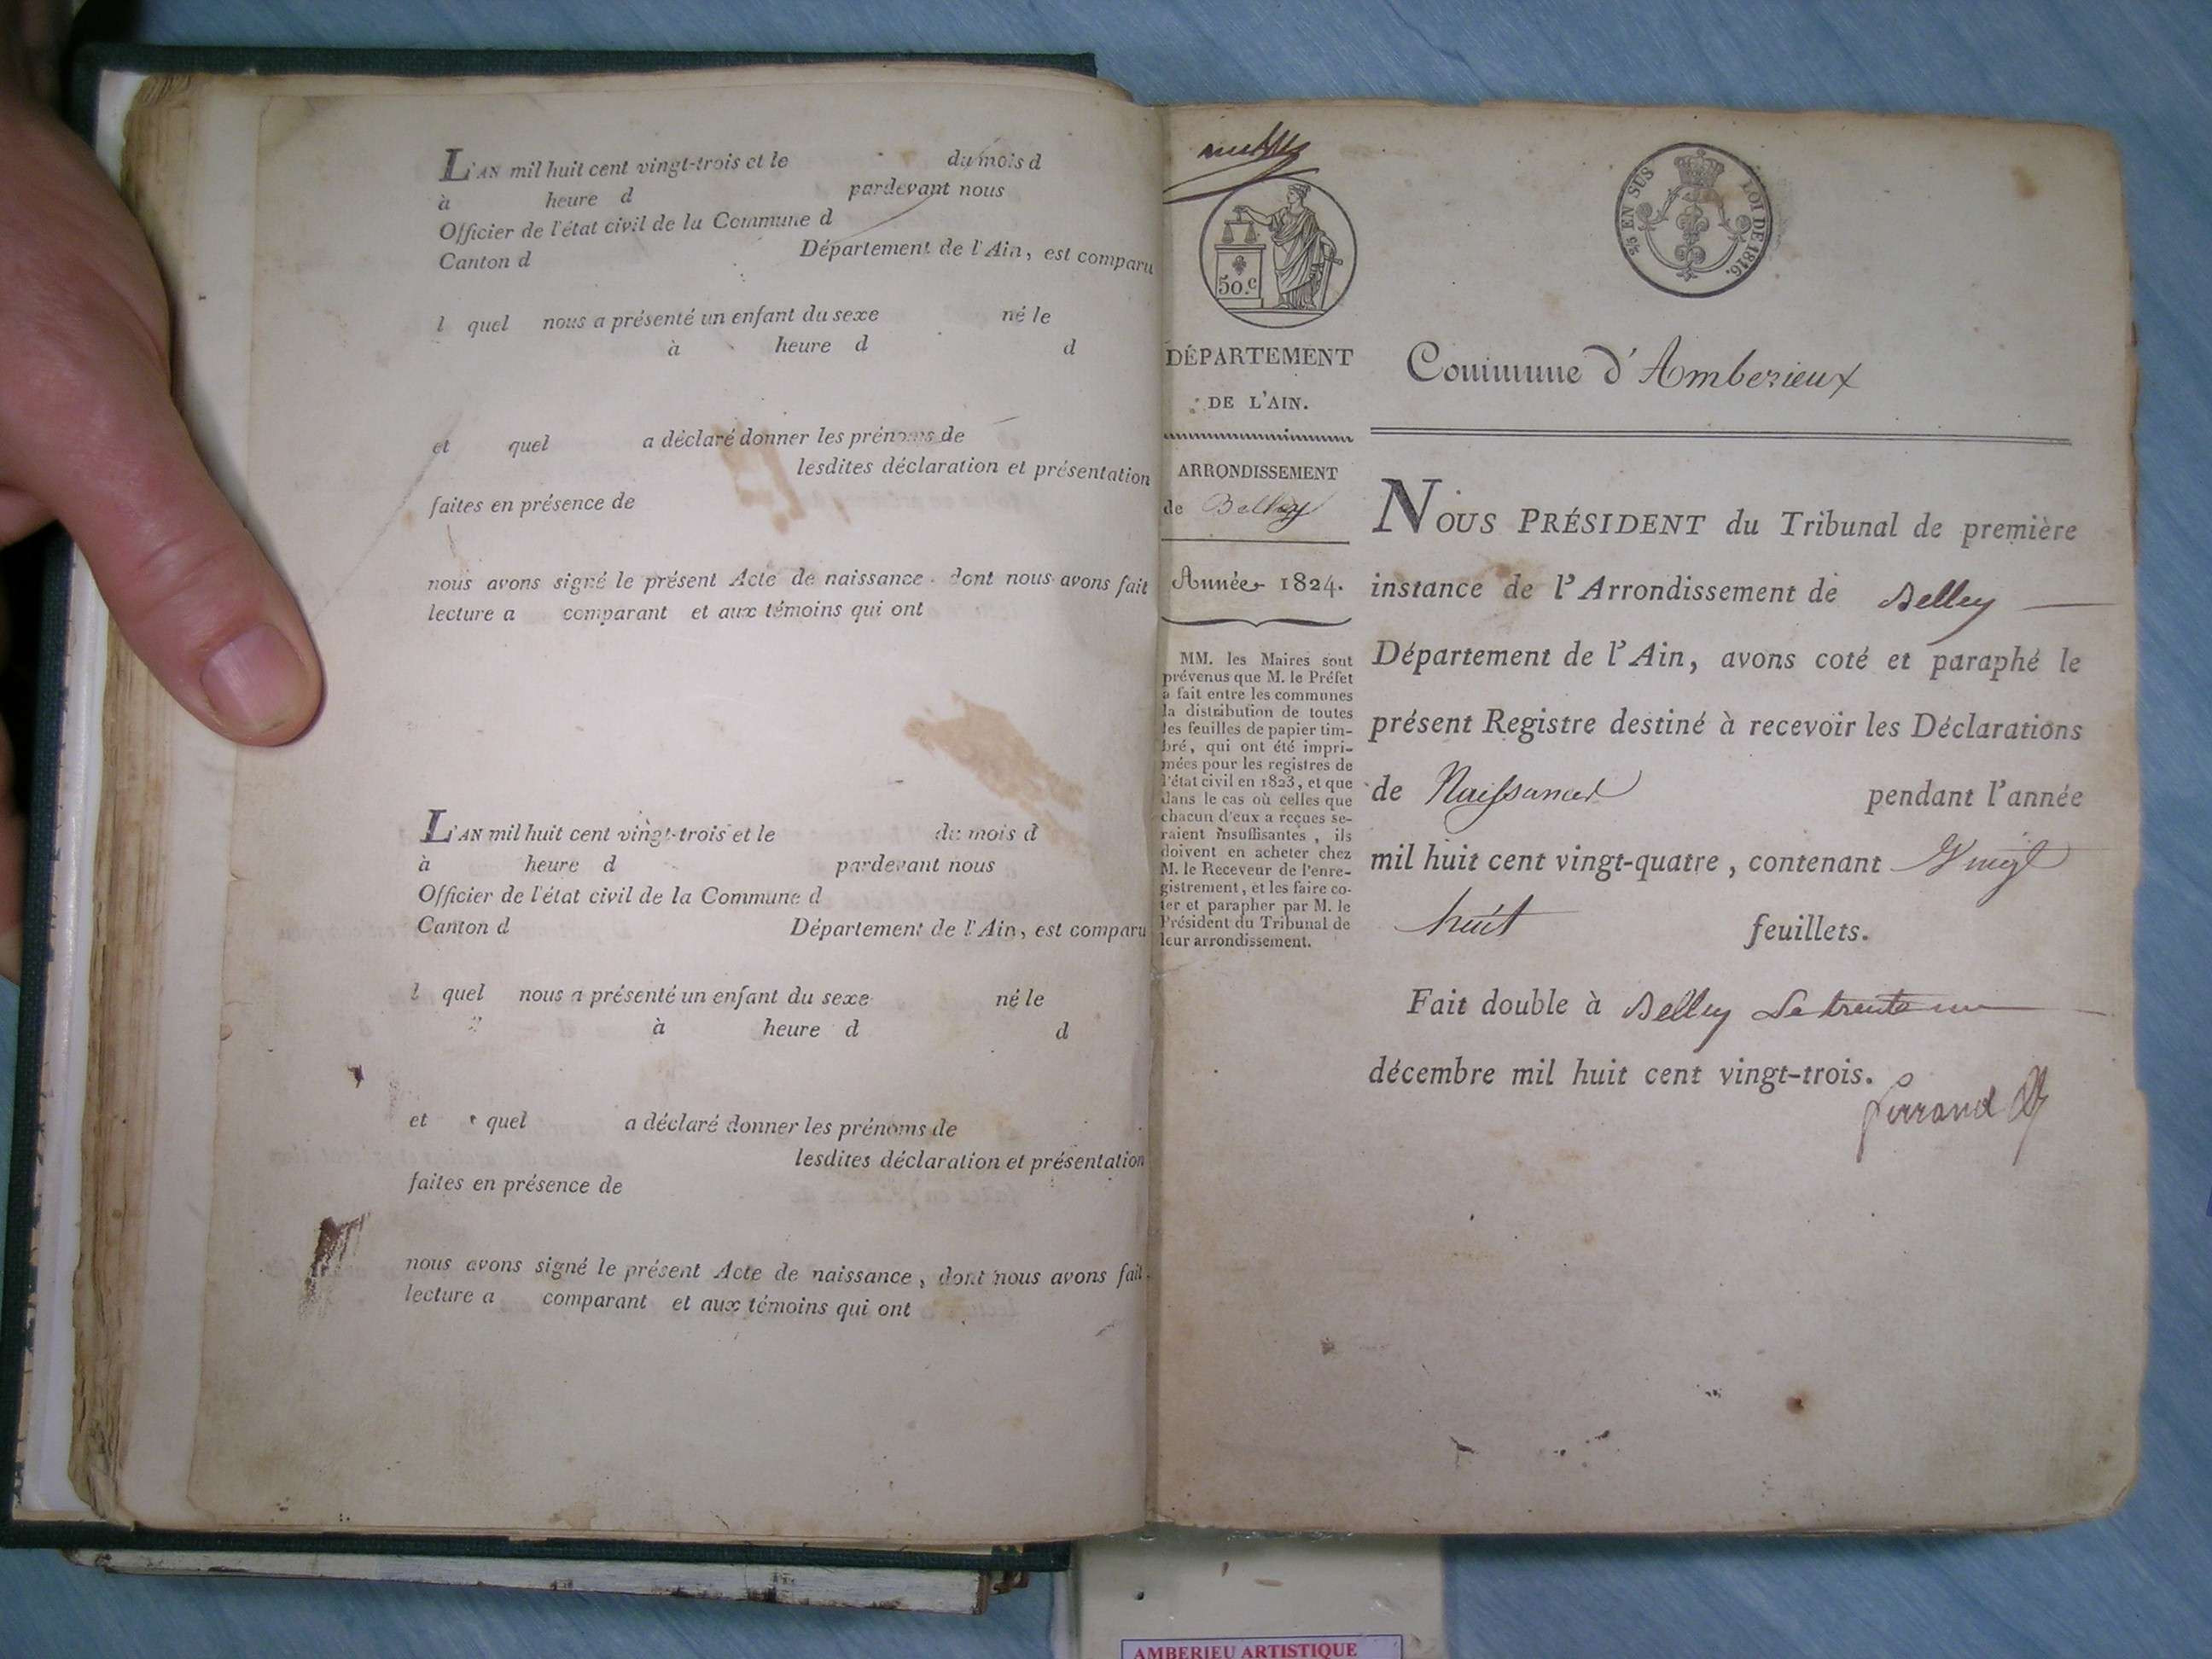 L'AN mil huit cent vingt-trois et le du mois d
à heure d pardevant nous
Officier de l'état civil de la Commune d
Canton d Département de l'Ain, est comparu
l quel nous a présenté un enfant du sexe né le
à heure d d
et quel a déclaré donner les prénoms de
lesdites déclaration et présentation
faites en présence de
nous avons signé le présent Acte de naissance, dont nous avons fait
lecture a comparant et aux témoins qui ont
L'AN mil huit cent vingt-trois et le du mois d
à heure d pardevant nous
Officier de l'état civil de la Commune d
Canton d Département de l'Ain, est comparu
l quel nous a présenté un enfant du sexe né le
à heure d d
et quel a déclaré donner les prénoms de
lesdites déclaration et présentation
faites en présence de
nous avons signé le présent Acte de naissance, dont nous avons fait
lecture a comparant et aux témoins qui ont
50.c
EN SUS LOI DE 1816.
DÉPARTEMENT
DE L'AIN.
ARRONDISSEMENT
de Belley
Année 1824.
MM. les Maires sont
prévenus que M. le Préfet
a fait entre les communes
la distribution de toutes
les feuilles de papier tim-
bré, qui ont été impri-
mées pour les registres de
l'état civil en 1823, et que
dans le cas où celles que
chacun d'eux a reçues se-
raient insuffisantes, ils
doivent en acheter chez
M. le Receveur de l'enre-
gistrement, et les faire co-
ter et parapher par M. le
Président du Tribunal de
leur arrondissement.
Commune d'Amberieux
NOUS PRÉSIDENT du Tribunal de première
instance de l'Arrondissement de Belley
Département de l'Ain, avons coté et paraphé le
présent Registre destiné à recevoir les Déclarations
de Naissances pendant l'année
mil huit cent vingt-quatre, contenant Vingt
huit feuillets.
Fait double à Belley Le trente un
décembre mil huit cent vingt-trois.
AMBERIEU ARTISTIQUE